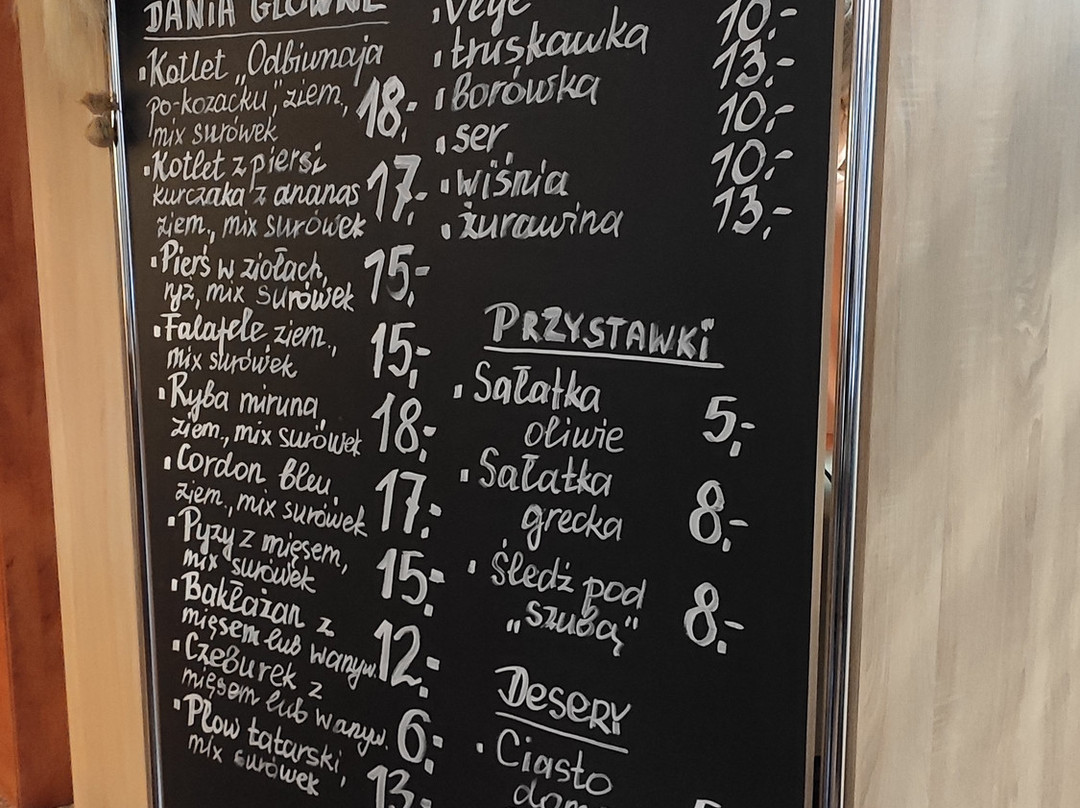 DANIA GŁÓWNE
Kotlet „Odbiwnaja
po-kozacku", ziem., 18,-
mix surówek
Kotlet z piersi
kurczaka z ananas 17,-
ziem., mix surówek
Pierś w ziołach,
ryż, mix surówek 15,-
Falafele, ziem.,
mix surówek 15,-
Ryba miruna,
ziem., mix surówek 18,-
Cordon bleu,
ziem., mix surówek 17,-
Pyzy z mięsem,
mix surówek 15,-
Bakłażan z
mięsem lub warzyw. 12,-
Czeburek z
mięsem lub warzyw. 6,-
Płow tatarski,
mix surówek 13,-
vege 10,-
truskawka 13,-
borówka 10,-
ser 10,-
wiśnia 13,-
żurawina
PRZYSTAWKI
Sałatka
oliwie 5,-
Sałatka
grecka 8,-
Śledź pod
„szubą" 8,-
DESERY
Ciasto